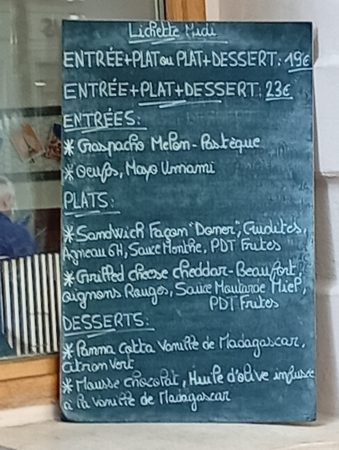 Lichette Midi
ENTRÉE+PLAT ou PLAT+DESSERT: 19€
ENTRÉE+PLAT+DESSERT: 23€
ENTRÉES:
* Gaspacho Melon-Pastèque
* Oeufs, Mayo Umami
PLATS:
* Sandwich Façon "Döner", Crudités,
Agneau 6H, Sauce Menthe, PDT Frites
* Grilled cheese cheddar-Beaufort,
oignons Rouges, Sauce Moutarde Miel,
PDT Frites
DESSERTS:
* Panna Cotta Vanille de Madagascar,
Citron Vert
* Mousse chocolat, Huile d'olive infusée
à la Vanille de Madagascar